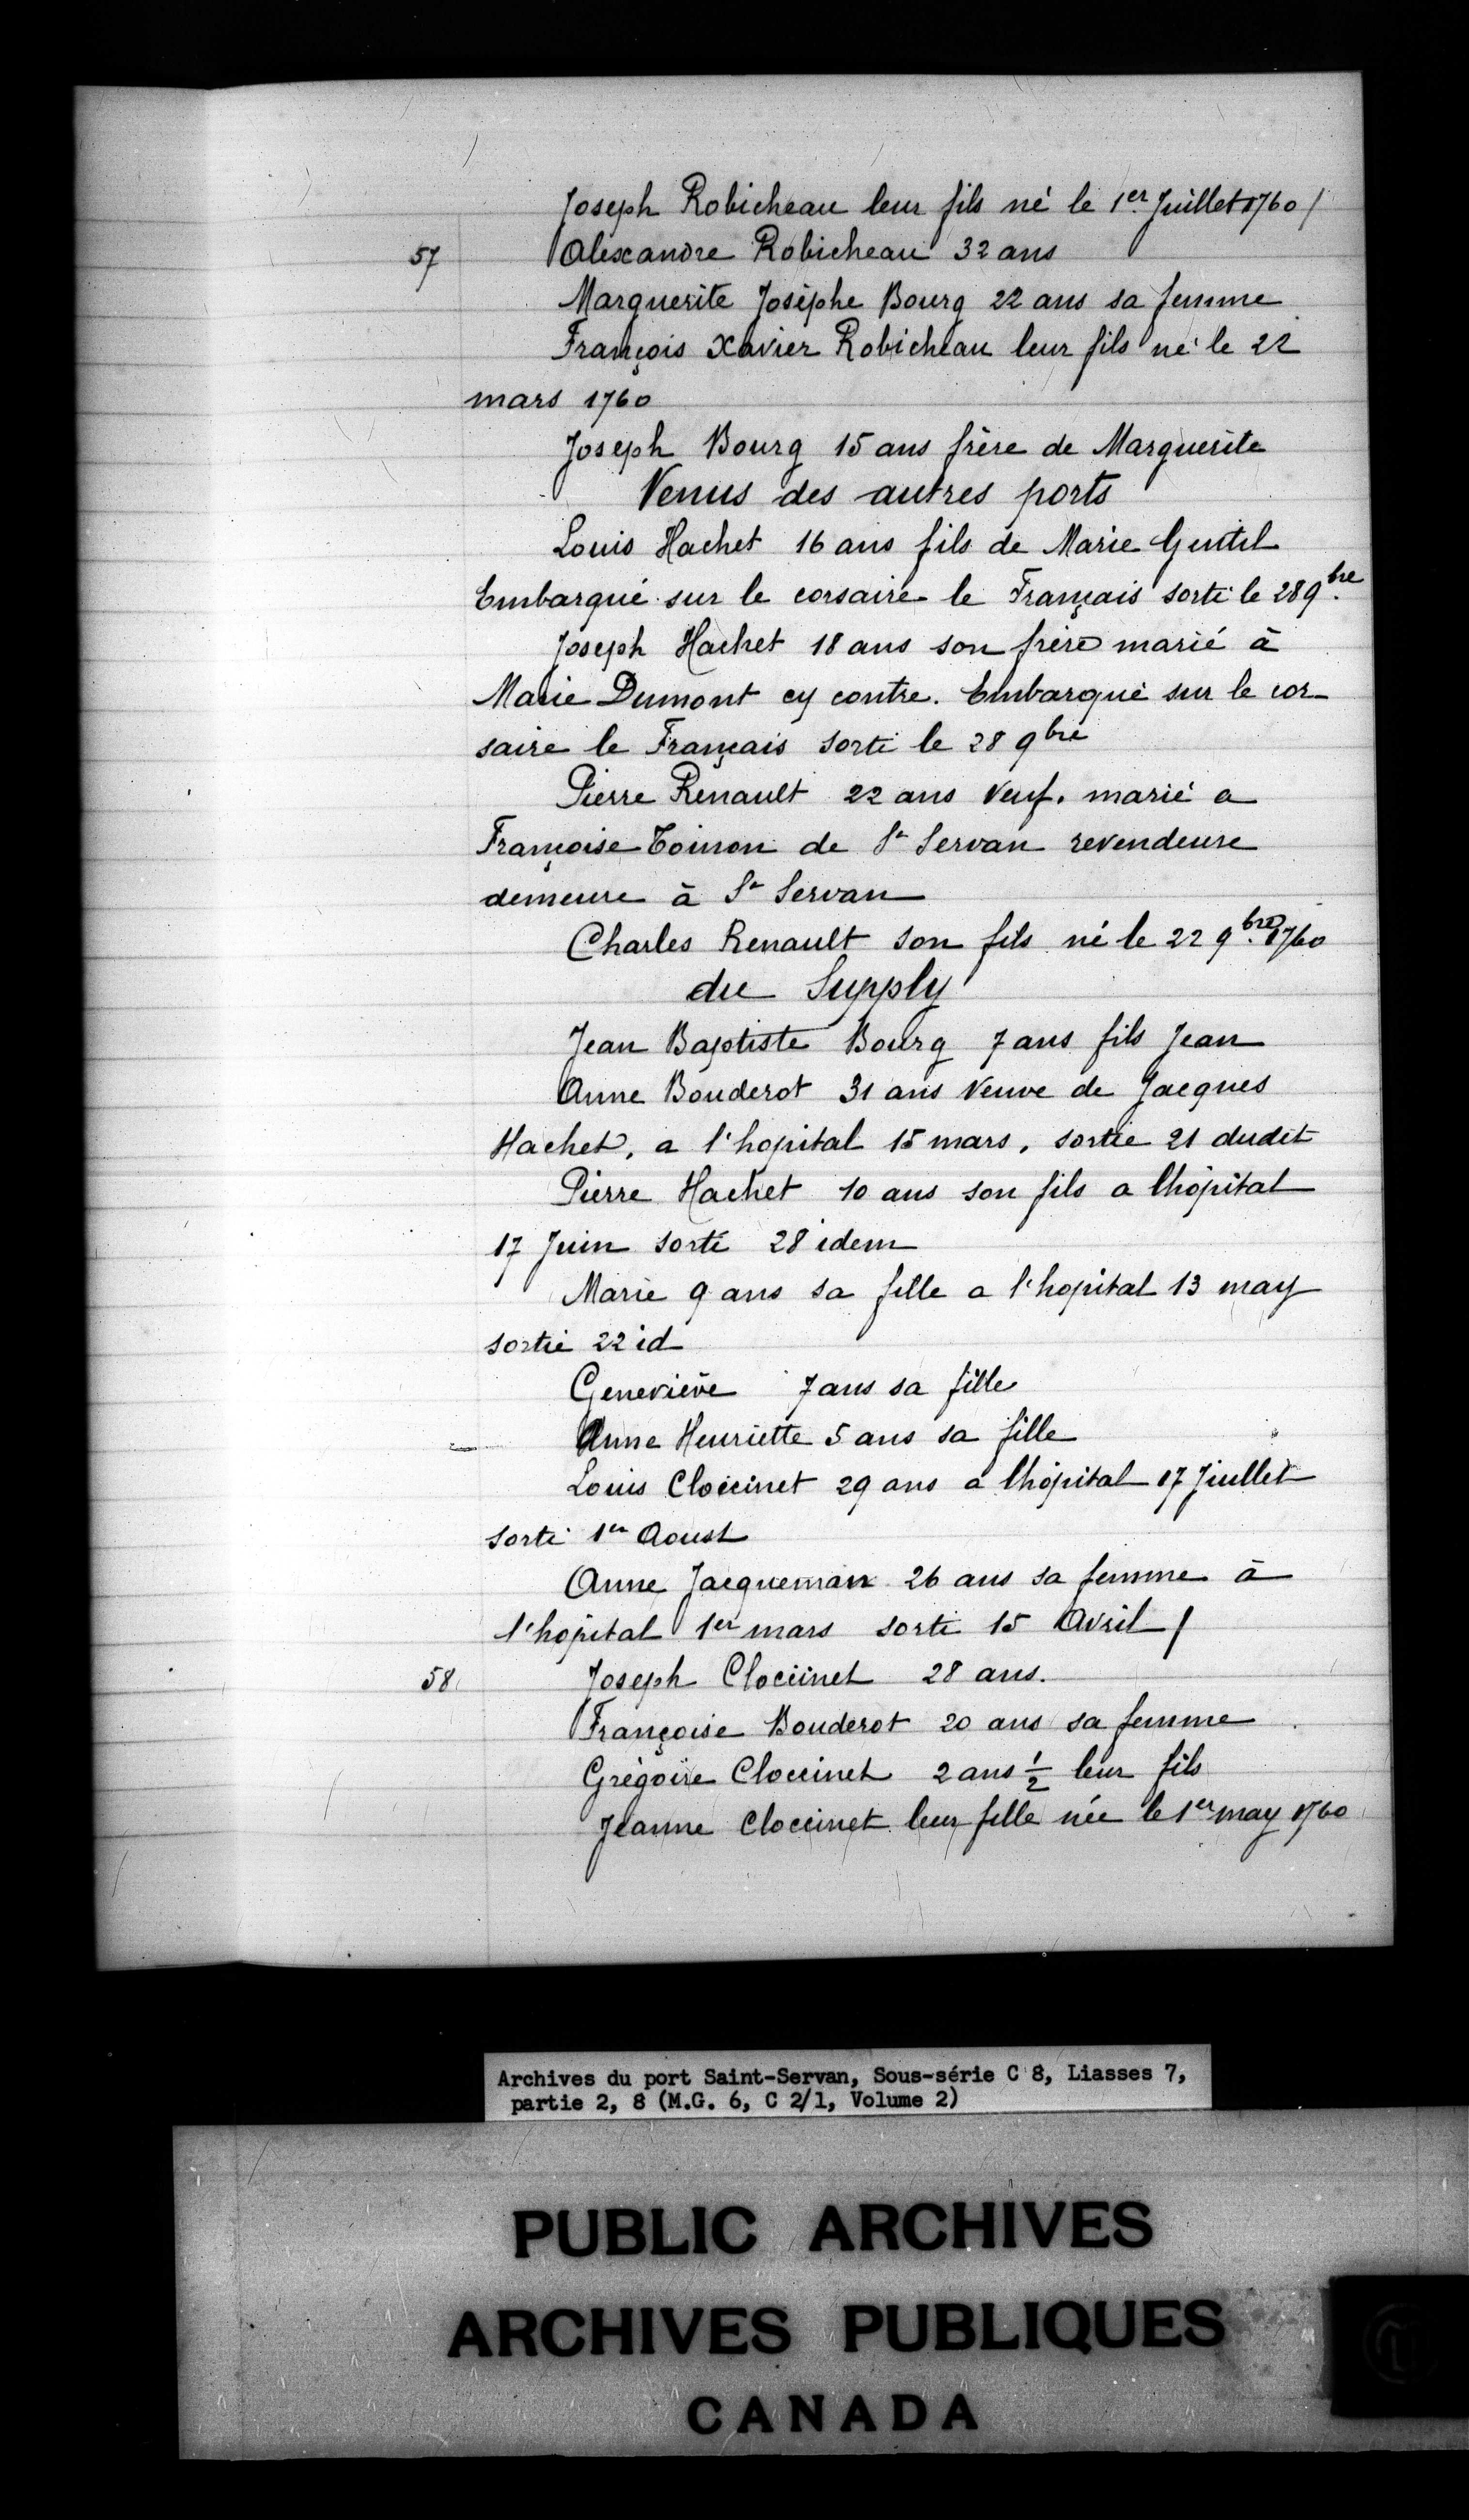 Joseph Robicheau leur fils né le 1er Juillet 1760 /
57 Alexandre Robicheau 32 ans
Marguerite Josèphe Bourg 22 ans sa femme
François Xavier Robicheau leur fils né le 22
mars 1760
Joseph Bourg 15 ans frère de Marguerite
Venus des autres ports
Louis Hachet 16 ans fils de Marie Gentil
Embarqué sur le corsaire le Français sorti le 28 9bre
Joseph Hachet 18 ans son frère marié à
Marie Dumont cy contre. Embarqué sur le cor-
saire le Français sorti le 28 9bre
Pierre Renault 22 ans veuf. marié a
Françoise Toinon de St Servan revendeuse
demeure à St Servan
Charles Renault son fils né le 22 9bre 1760
du Supply
Jean Baptiste Bourg 7 ans fils Jean
Anne Bouderot 31 ans Veuve de Jacques
Hachet, a l'hopital 15 mars, sortie 21 dudit
Pierre Hachet 10 ans son fils a lhôpital
17 Juin sorti 28 idem
Marie 9 ans sa fille a l'hopital 13 may
sortie 22 id
Geneviève 7 ans sa fille
Anne Henriette 5 ans sa fille
Louis Clocinet 29 ans a lhôpital 17 Juillet
sorti 1er Aoust
Anne Jacqueman 26 ans sa femme à
l'hôpital 1er mars sorti 15 Avril /
58 Joseph Clocinet 28 ans.
Françoise Bouderot 20 ans sa femme
Grégoire Clocinet 2 ans 1/2 leur fils
Jeanne Clocinet leur fille née le 1er may 1760
Archives du port Saint-Servan, Sous-série C 8, Liasses 7,
partie 2, 8 (M.G. 6, C 2/1, Volume 2)
PUBLIC ARCHIVES
ARCHIVES PUBLIQUES
CANADA